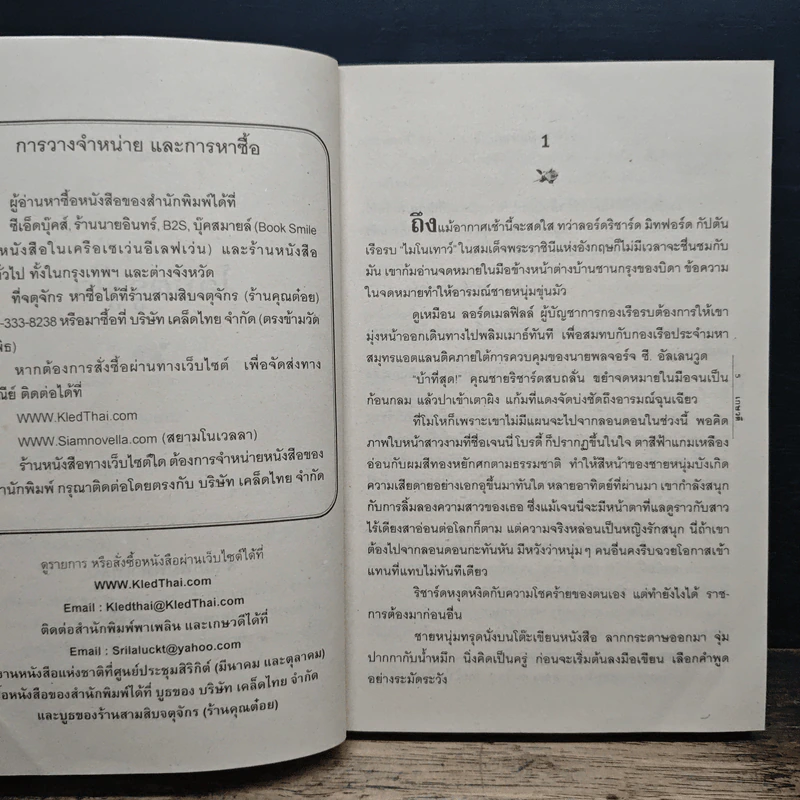 การวางจำหน่าย และการหาซื้อ
ผู้อ่านหาซื้อหนังสือของสำนักพิมพ์ได้ที่
ซีเอ็ดบุ๊คส์, ร้านนายอินทร์, B2S, บุ๊คสมายล์ (Book Smile
หนังสือในเครือเซเว่นอีเลฟเว่น) และร้านหนังสือ
ทั่วไป ทั้งในกรุงเทพฯ และต่างจังหวัด
ที่จตุจักร หาซื้อได้ที่ร้านสามสิบจตุจักร (ร้านคุณต๋อย)
-333-8238 หรือมาซื้อที่ บริษัท เคล็ดไทย จำกัด (ตรงข้ามวัด
หากต้องการสั่งซื้อผ่านทางเว็บไซต์ เพื่อจัดส่งทาง
ณีย์ ติดต่อได้ที่
WWW.KledThai.com
WWW.Siamnovella.com (สยามโนเวลลา)
ร้านหนังสือทางเว็บไซต์ใด ต้องการจำหน่ายหนังสือของ
สำนักพิมพ์ กรุณาติดต่อโดยตรงกับ บริษัท เคล็ดไทย จำกัด
ดูรายการ หรือสั่งซื้อหนังสือผ่านเว็บไซต์ได้ที่
WWW.KledThai.com
Email : Kledthai@KledThai.com
ติดต่อสำนักพิมพ์พาเพลิน และเกษวดีได้ที่
Email : Srilaluckt@yahoo.com
งานหนังสือแห่งชาติที่ศูนย์ประชุมสิริกิติ์ (มีนาคม และตุลาคม)
หนังสือของสำนักพิมพ์ได้ที่ บูธของ บริษัท เคล็ดไทย จำกัด
และบูธของร้านสามสิบจตุจักร (ร้านคุณต๋อย)
1
ถึงแม้อากาศเช้านี้จะสดใส ทว่าลอร์ดริชาร์ด มิทฟอร์ด กัปตัน
เรือรบ "ไมโนเทาว์" ในสมเด็จพระราชินีแห่งอังกฤษก็ไม่มีเวลาจะชื่นชมกับ
มัน เขาก้มอ่านจดหมายในมือข้างหน้าต่างบ้านชานกรุงของบิดา ข้อความ
ในจดหมายทำให้อารมณ์ชายหนุ่มขุ่นมัว
ดูเหมือน ลอร์ดเมลฟิลล์ ผู้บัญชาการกองเรือรบต้องการให้เขา
มุ่งหน้าออกเดินทางไปพลิมเมาธ์ทันที เพื่อสมทบกับกองเรือประจำมหา
สมุทรแอตแลนติคภายใต้การควบคุมของนายพลจอร์จ ซี. อัลเลนวูด
"บ้าที่สุด!" คุณชายริชาร์ดสบถลั่น ขยำจดหมายในมือจนเป็น
ก้อนกลม แล้วปาเข้าเตาผิง แก้มที่แดงจัดบ่งชัดถึงอารมณ์ฉุนเฉียว
ที่โมโหก็เพราะเขาไม่มีแผนจะไปจากลอนดอนในช่วงนี้ พอคิด
ภาพใบหน้าสาวงามที่ชื่อเจนนี่ โบรดี้ ก็ปรากฏขึ้นในใจ ตาสีฟ้าแกมเหลือง
อ่อนกับผมสีทองหยักศกตามธรรมชาติ ทำให้สีหน้าของชายหนุ่มบังเกิด
ความเสียดายอย่างเอกอุขึ้นมาทันใด หลายอาทิตย์ที่ผ่านมา เขากำลังสนุก
กับการลิ้มลองความสาวของเธอ ซึ่งแม้เจนนี่จะมีหน้าตาที่แลดูราวกับสาว
ไร้เดียงสาอ่อนต่อโลกก็ตาม แต่ความจริงหล่อนเป็นหญิงรักสนุก นี่ถ้าเขา
ต้องไปจากลอนดอนกะทันหัน มีหวังว่าหนุ่มๆ คนอื่นคงรีบฉวยโอกาสเข้า
แทนที่แทบไม่ทันทีเดียว
ริชาร์ดหงุดหงิดกับความโชคร้ายของตนเอง แต่ทำยังไงได้ ราช-
การต้องมาก่อนอื่น
ชายหนุ่มทรุดนั่งบนโต๊ะเขียนหนังสือ ลากกระดาษออกมา จุ่ม
ปากกากับน้ำหมึก นิ่งคิดเป็นครู่ ก่อนจะเริ่มต้นลงมือเขียน เลือกคำพูด
อย่างระมัดระวัง
5
เกษวดี